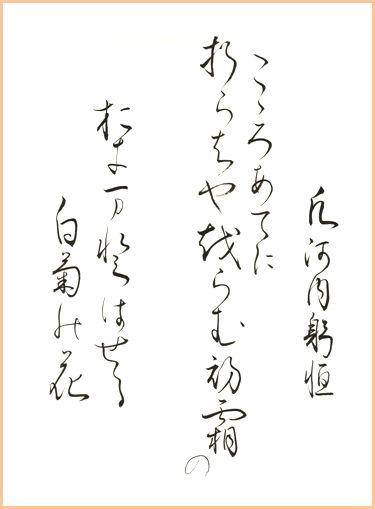 凡河内躬恒
こゝろあてに
折らはや越らむ初霜の
おきまとはせる
白菊能花